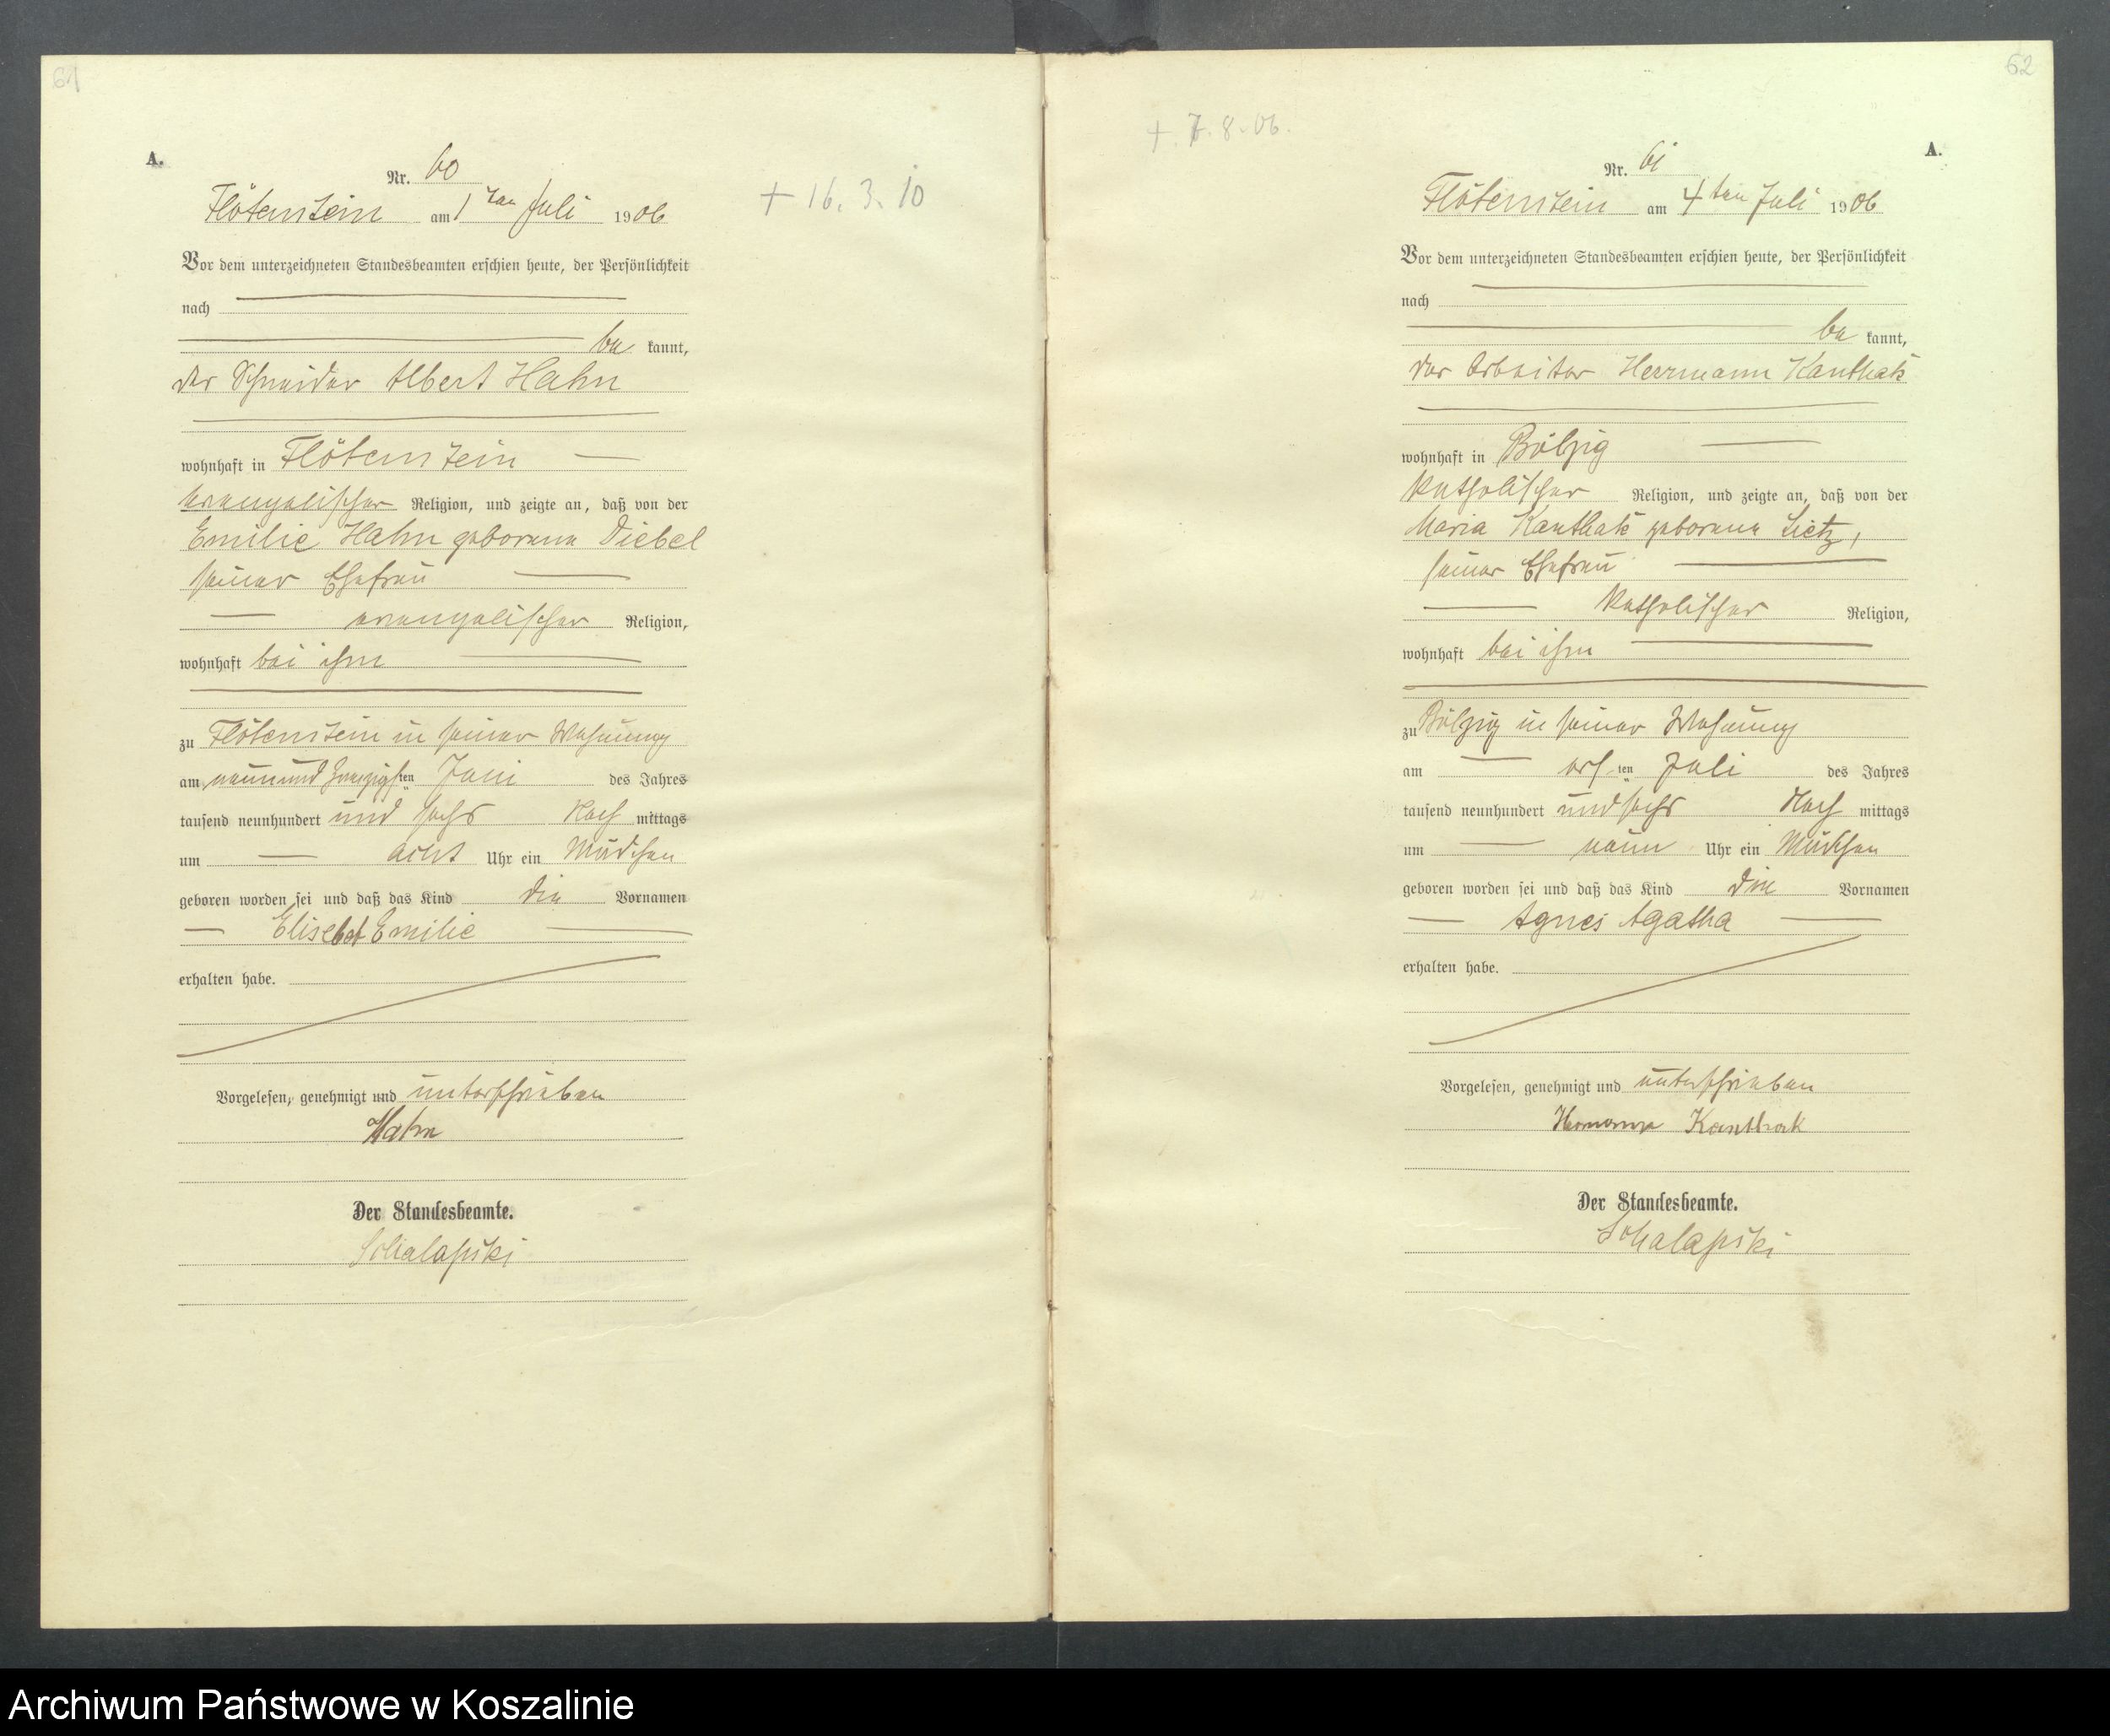 61
A.
Nr. 60
Flötenstein am 1ten Juli 1906
+ 16. 3. 10
Vor dem unterzeichneten Standesbeamten erschien heute, der Persönlichkeit
nach
be kannt,
der Schneider Albert Hahn
wohnhaft in Flötenstein
evangelischer Religion, und zeigte an, daß von der
Emilie Hahn geborene Diebel
seiner Ehefrau
evangelischer Religion,
wohnhaft bei ihm
zu Flötenstein in seiner Wohnung
am neunundzwanzigsten Juni des Jahres
tausend neunhundert und sechs Nach mittags
um acht Uhr ein Mädchen
geboren worden sei und daß das Kind die Vornamen
Elisebet Emilie
erhalten habe.
Vorgelesen, genehmigt und unterschrieben
Hahn
Der Standesbeamte.
Schalapski
62
+. 7. 8. 06.
A.
Nr. 61
Flötenstein am 4ten Juli 1906
Vor dem unterzeichneten Standesbeamten erschien heute, der Persönlichkeit
nach
be kannt,
der Arbeiter Herrmann Kanthak
wohnhaft in Bölzig
katholischer Religion, und zeigte an, daß von der
Maria Kanthak geborene Lietz,
seiner Ehefrau
katholischer Religion,
wohnhaft bei ihm
zu Bölzig in seiner Wohnung
am ersten Juli des Jahres
tausend neunhundert und sechs Nach mittags
um neun Uhr ein Mädchen
geboren worden sei und daß das Kind die Vornamen
Agnes Agatha
erhalten habe.
Vorgelesen, genehmigt und unterschrieben
Hermann Kanthak
Der Standesbeamte.
Schalapski
Archiwum Państwowe w Koszalinie